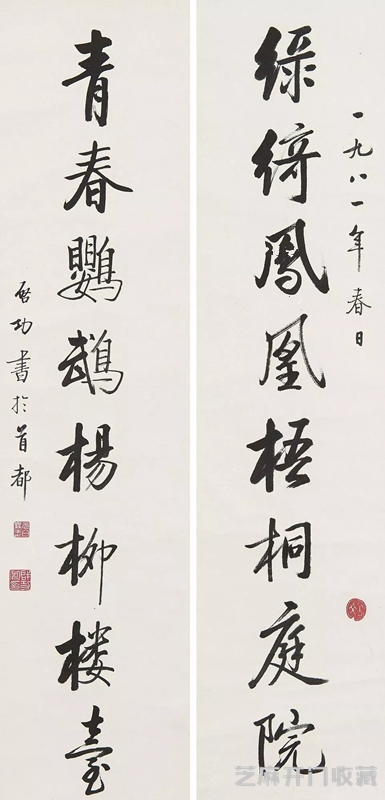 一九八一年春日
綠綺鳳凰梧桐庭院
青春鸚鵡楊柳楼臺
启功書於首都
芝麻开门收藏